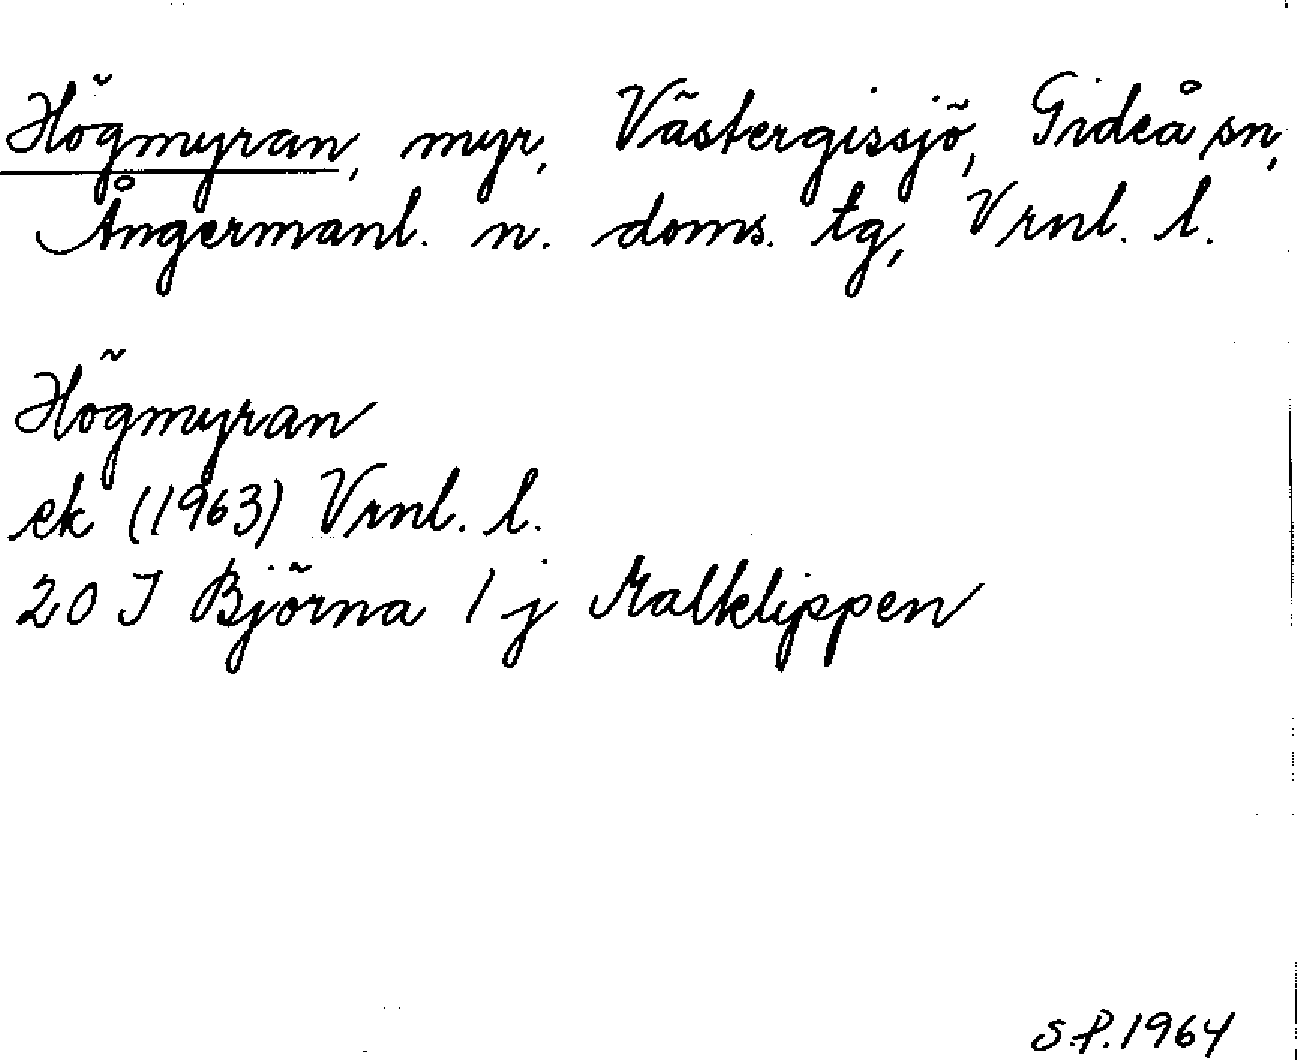 Högmyran, myr, Västergissjö, Gideå sn,
Ångermanl. n. doms. tg, Vrnl. l.
Högmyran
ek (1963) Vrnl. l.
20 I Björna 1 j Malklippen
S.P. 1964